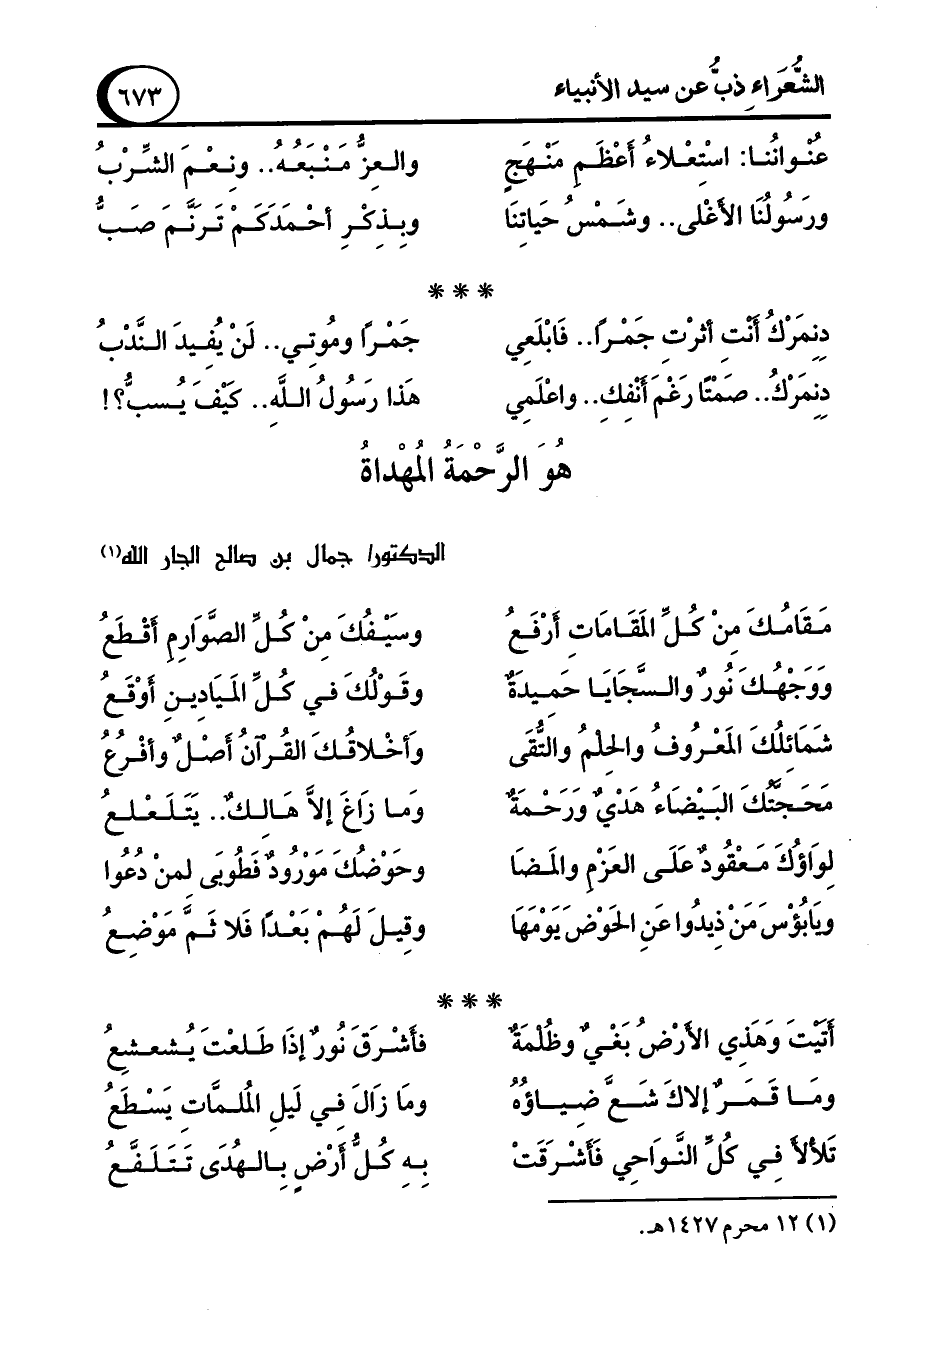 الشُّعَرَاءِ ذبُّ عن سيد الأنبياء ٦٧٣
عُنْوانُنا: اسْتِعْلاءُ أعْظَمِ مَنْهَجٍ والعِزُّ مَنْبَعُهُ.. ونِعْمَ الشِّرْبُ
ورَسُولُنَا الأغْلى.. وشَمْسُ حَيَاتِنَا وبِذِكْرِ أحْمَدَكَمْ تَرَنَّمَ صَبُّ
* * *
دِنِمَرْكُ أنْتِ أثرْتِ جَمْراً.. فَابْلَعِي جَمْرًا ومُوتِي.. لَنْ يُفِيدَ النَّدْبُ
دِنِمَرْكُ.. صَمْتًا رَغْمَ أنْفِكِ.. واعْلَمِي هَذا رَسُولُ اللَّهِ.. كَيْفَ يُسبُّ؟!
هُوَ الرَّحْمَةُ المُهْداةُ
الدكتور/ جمال بن صالح الجار الله(١)
مَقَامُكَ مِنْ كُلِّ المَقَامَاتِ أرْفَعُ وسَيْفُكَ مِنْ كُلِّ الصَّوَارِمِ أقْطَعُ
وَوَجْهُكَ نُورٌ والسَّجَايَا حَمِيدَةٌ وقَوْلُكَ في كُلِّ المَيَادِينِ أوْقَعُ
شَمَائلُكَ المَعْرُوفُ والحِلْمُ والتُّقَى وَأخْلاقُكَ القُرْآنُ أصْلٌ وأفْرُعُ
مَحَجَّتُكَ البَيْضَاءُ هَدْيٌ وَرَحْمَةٌ وَما زَاغَ إلاَّ هَالكٌ.. يَتَلَعْلعُ
لِوَاؤُكَ مَعْقُودٌ عَلَى العَزْمِ والمَضَا وحَوْضُكَ مَوْرُودٌ فَطُوبَى لِمنْ دُعُوا
ويَابُؤْسَ مَنْ ذِيدُوا عَنِ الحَوْضِ يَوْمَهَا وقِيلَ لَهُمْ بَعْدًا فَلا ثمَّ مَوْضِعُ
* * *
أتَيْتَ وَهَذِي الأرْضُ بَغْيٌ وظُلْمَةٌ فأشْرَقَ نُورٌ إذَا طَلعْتَ يُشعشِعُ
ومَا قَمَرٌ إلاكَ شَعَّ ضِياؤُهُ ومَا زَالَ في لَيلِ المُلمَّاتِ يَسْطَعُ
تَلألأَ فِي كُلِّ النَّواحِي فَأشْرَقَتْ بِهِ كُلُّ أرْضٍ بِالهُدَى تَتَلَفَّعُ
(١) ١٢ محرم ١٤٢٧هـ.